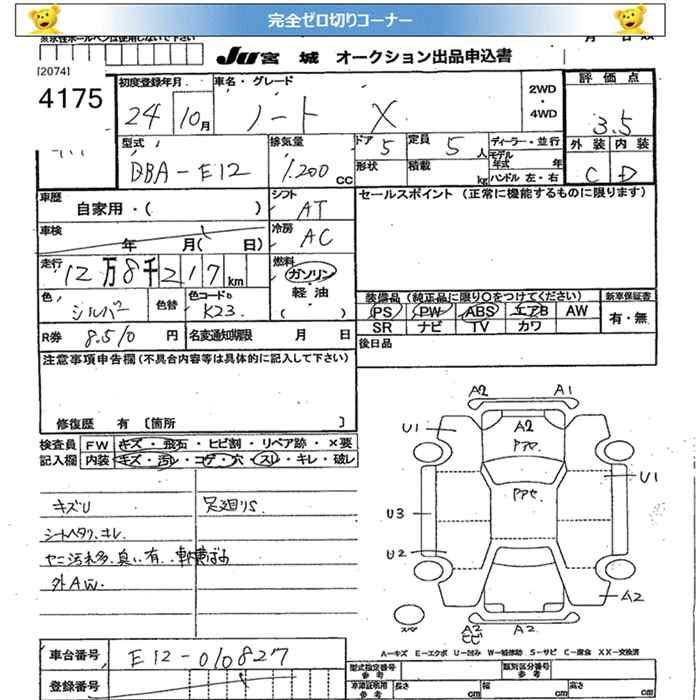 完全ゼロ切りコーナー
意水性ボールペンは使用しないで下さい 月 日 XX
[2074]
JU 宮城 オークション出品申込書
4175
初度登録年月 車名・グレード 2WD・4WD 評価点
24 10月 ノート X 3.5
型式 排気量 ドア 定員 ディーラー・並行 外装 内装
DBA-E12 1,200 CC 5 5人 モデル年式 年 C D
形状 積載 kg ハンドル 左・右
車歴 シフト セールスポイント (正常に機能するものに限ります)
自家用・( ) AT
車検 冷房
年 月( 日) AC
走行 燃料
12万8千217km ガソリン・軽油
色 色替 色コードNo 装備品 (純正品に限り○をつけてください) 新車保証書
シルバー K23 PS PW ABS エアB AW 有・無
SR ナビ TV カワ
R券 8,510円 名変通知期限 月 日 後日品
注意事項申告欄 (不具合内容等は具体的に記入して下さい)
修復歴 有 〔箇所 〕
検査員 FW キズ・飛石・ヒビ割・リペア跡・×要
記入欄 内装 キズ・汚レ・コゲ・穴・スレ・キレ・破レ
キズU 足廻りS
シートヘタリ、キレ
ヤニ汚れ多、臭い有、
外AW
A2 A1
U1 A2
U1
U3
U2
A2
スペア A2 A2
A-キズ E-エクボ U-凹み W-補修跡 S-サビ C-腐食 XX-交換済
車台番号 E12-010827
登録番号
型式指定番号 参考 類別区分番号 参考
車庫証明用 参考 長さ cm 幅 cm 高さ cm